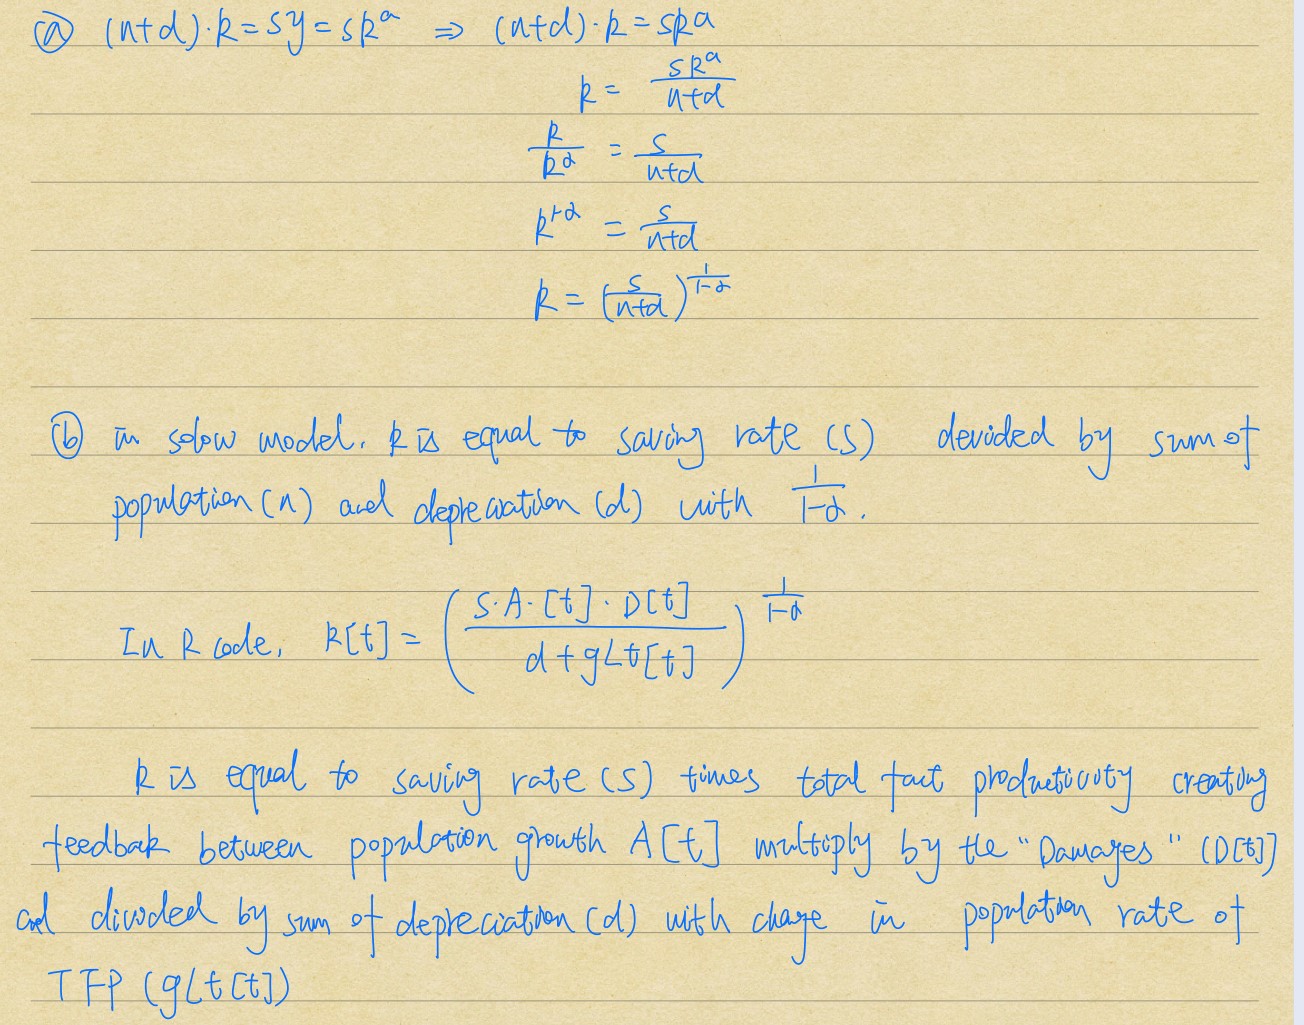 ⓐ (n+d)·k = sy = sk^α ⇒ (n+d)·k = sk^α
k = sk^α / n+d
k / k^α = s / n+d
k^1-α = s / n+d
k = (s / n+d)^1/1-α
ⓑ in solow model. k is equal to saving rate (s) devided by sum of
population (n) and depreciation (d) with 1/1-α.
In R code, k[t] = (S·A·[t]·D[t] / d+gLt[t])^1/1-α
k is equal to saving rate (s) times total fact productivity creating
feedback between population growth A[t] multiply by the "Damages" (D[t])
and divided by sum of depreciation (d) with change in population rate of
TFP (gLt[t])